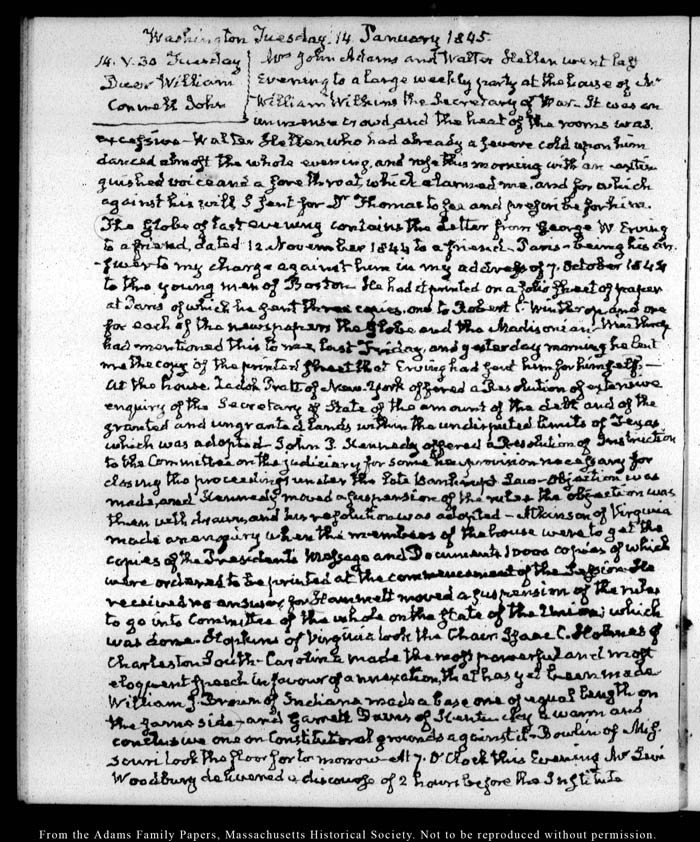 Washington Tuesday. 14 January 1845.
14. V. 30 Tuesday
Dreer William
Connell John
Mrs John Adams and Walter Hellen went last
Evening to a large weekly party at the house of Mr
William Wilkins the Secretary of War. It was an
immense crowd, and the heat of the rooms was
excessive — Walter Hellen who had already a severe cold upon him
danced almost the whole evening, and rose this morning with an extin
guished voice and a sore throat, which alarmed me, and for which
against his will I sent for Dr Thomas to see and prescribe for him.
The Globe of last evening contains the Letter from George W. Erving
to a friend, dated 12 November 1844 to a friend — Paris — being his an-
-swer to my charge against him in my address of 7. October 1844
to the young men of Boston. He had it printed on a folio sheet of paper
at Paris of which he sent three copies, one to Robert C. Winthrop, and one
for each of the newspapers the Globe and the Madisonian — Winthrop
had mentioned this to me last Friday, and yesterday morning he lent
me the copy of the printed sheet that Erving had sent him for himself. —
At the house Zadok Pratt of New-York offered a Resolution of extensive
enquiry of the Secretary of State of the amount of the debt and of the
granted and ungranted lands within the undisputed limits of Texas
which was adopted — John P. Kennedy offered a Resolution of Instruction
to the Committee on the judiciary for some new provision necessary for
closing the proceedings under the late Bankrupt Law — Objection was
made, and Kennedy moved a suspension of the rules the objection was
then withdrawn, and his resolution was adopted — Atkinson of Virginia
made an enquiry where the members of the house were to get the
copies of the President's Message and Documents 10000 copies of which
were ordered to be printed at the commencement of the Session. He
received no answer for Hammett moved a suspension of the rules
to go into Committee of the whole on the State of the Union; which
was done. Hopkins of Virginia took the Chair. Isaac E. Holmes of
Charleston South-Carolina made the most powerful and most
eloquent speech in favour of annexation, that has yet been made
William J. Brown of Indiana made a base one of equal length on
the same side — and Garrett Davis of Kentucky a warm and
conclusive one on Constitutional grounds against it — Bowlin of Mis-
souri took the floor for to morrow — At 7. O'Clock this Evening Mr Levi
Woodbury delivered a discourse of 2 hours before the Institute
From the Adams Family Papers, Massachusetts Historical Society. Not to be reproduced without permission.